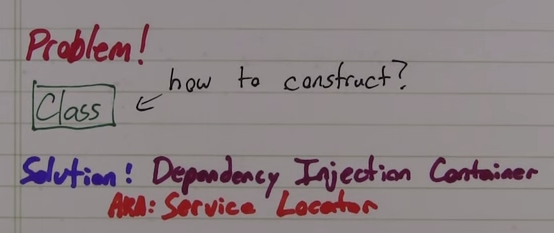 Problem!
how to construct?
Class
Solution! Dependency Injection Container
AKA: Service Locator